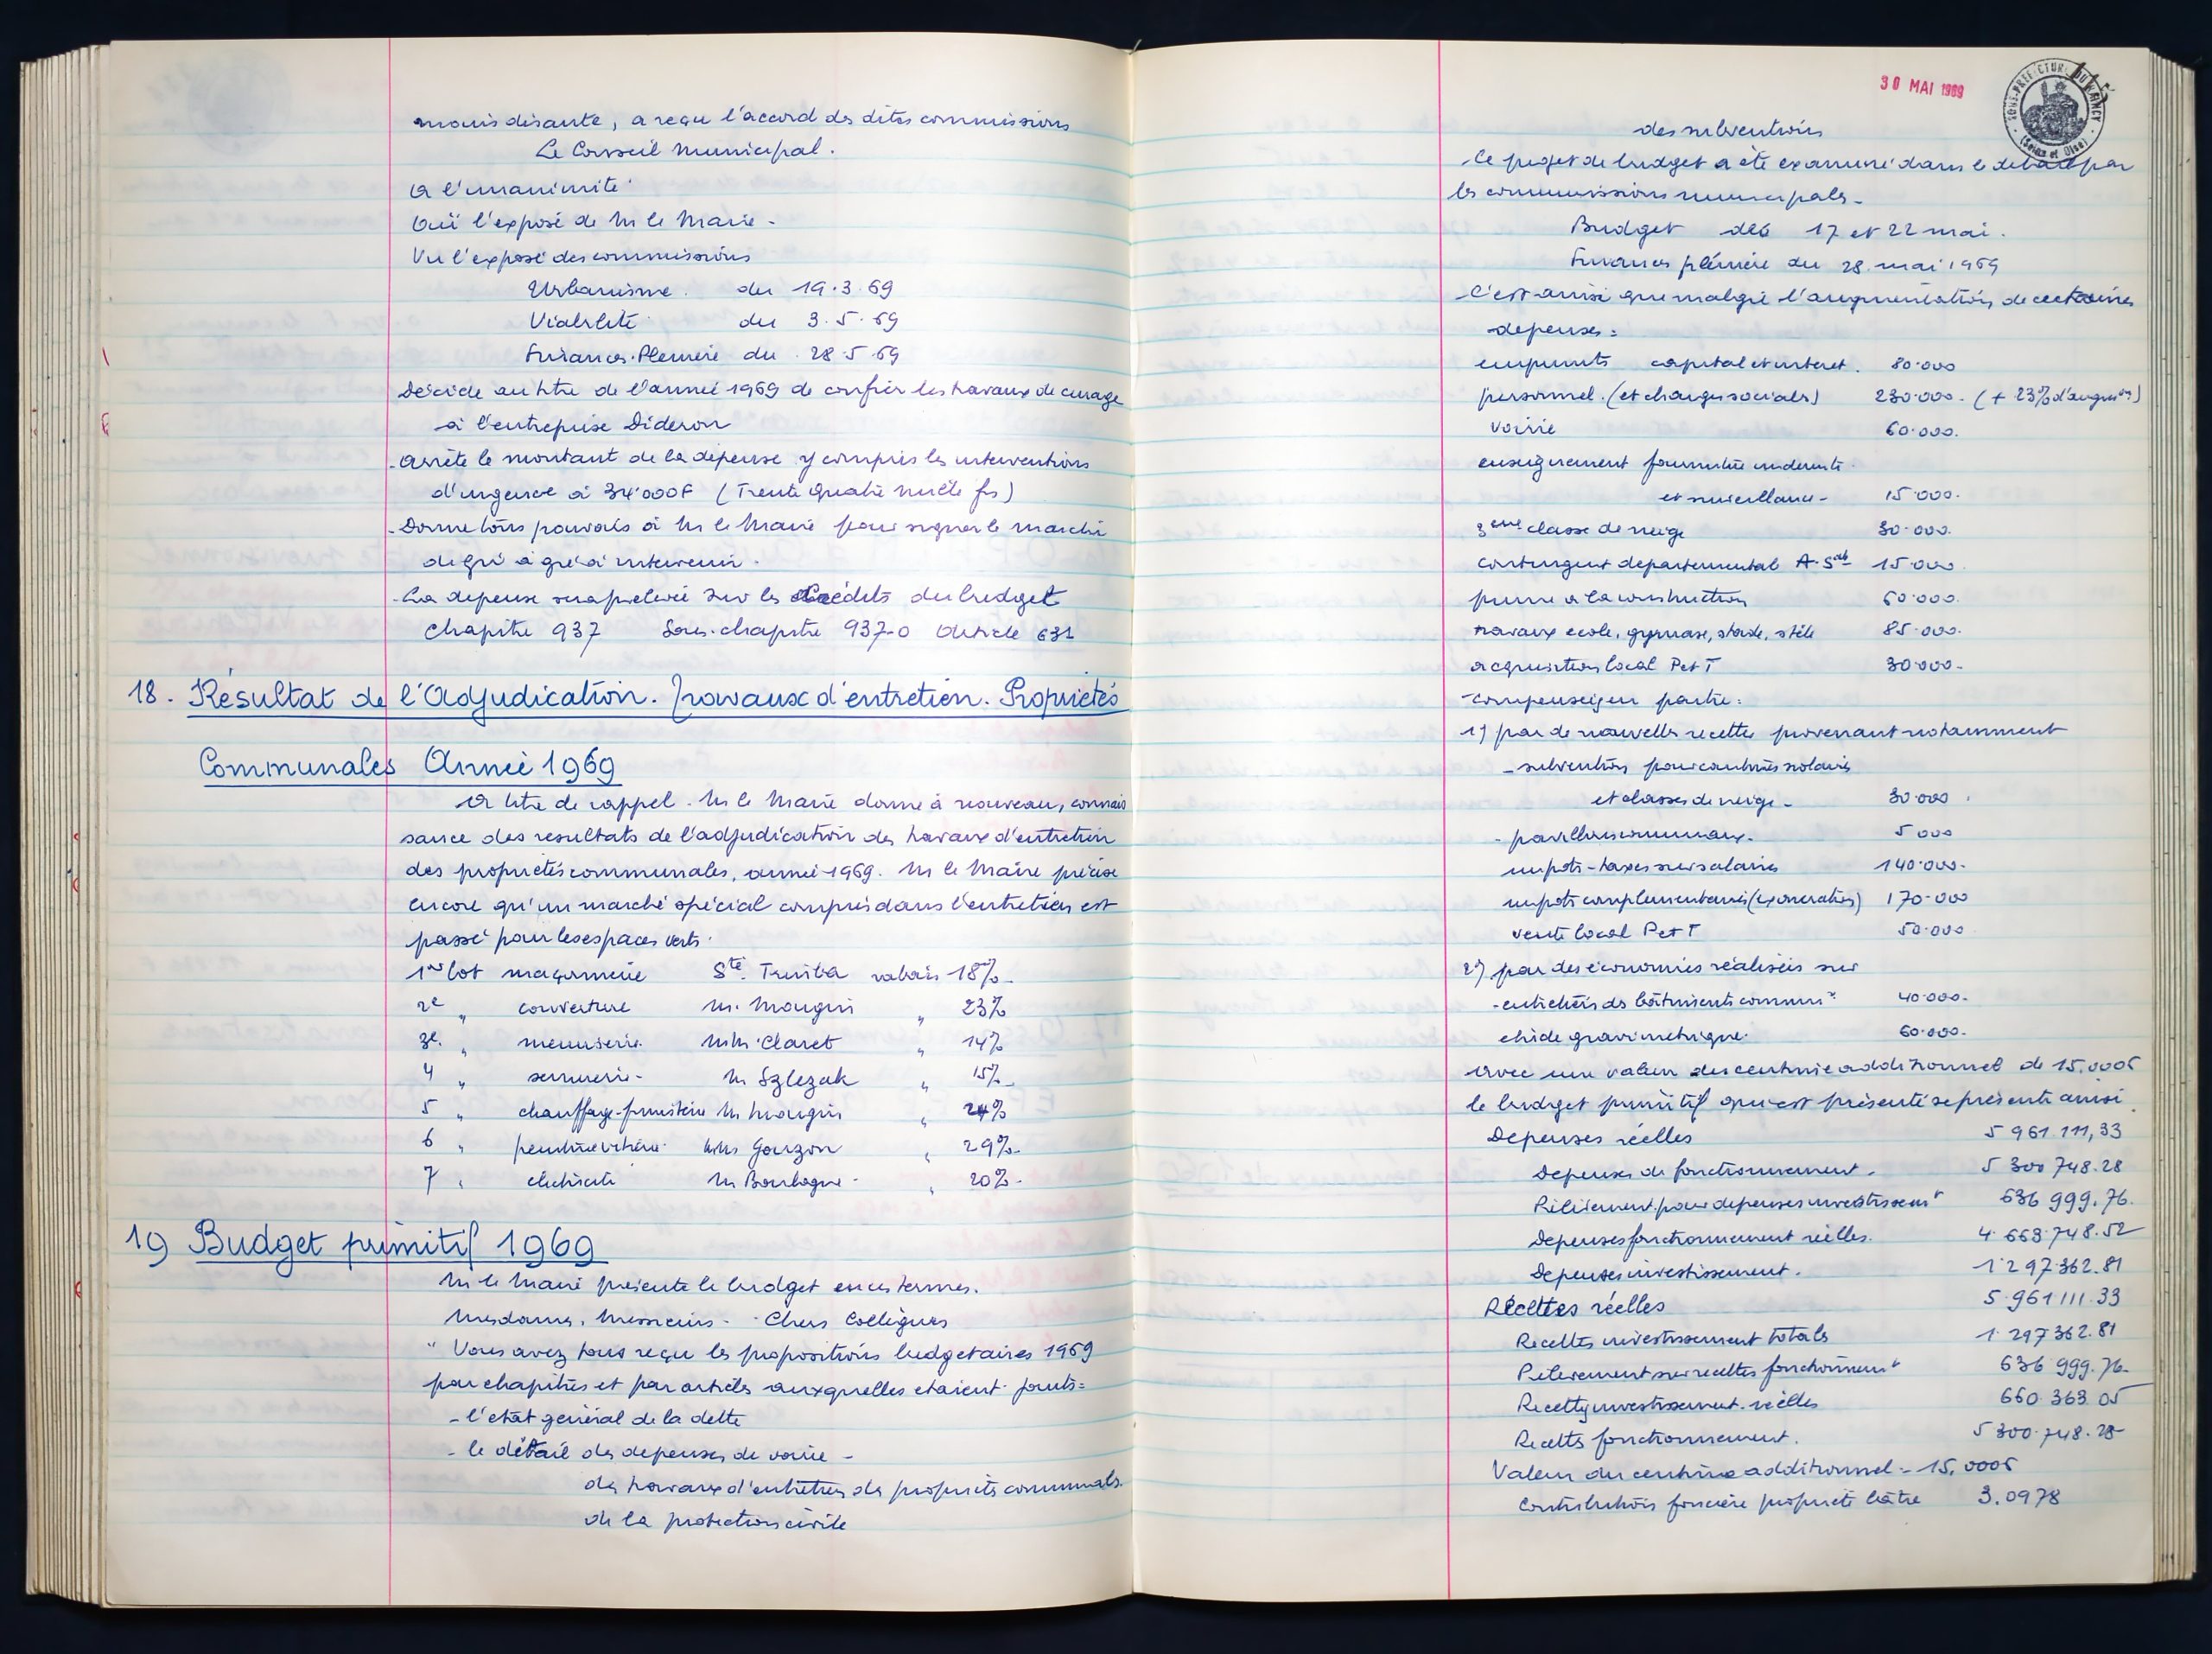 moins disante, a reçu l'accord des dites commissions
Le Conseil Municipal.
A l'unanimité
Ouï l'exposé de M le Maire -
Vu l'exposé des commissions
Urbanisme. du 19.3.69
Viabilité du 3.5.69
Finances. Plénière du 28.5.69
Décide au titre de l'année 1969 de confier les travaux de curage
à l'entreprise Dideron
- Arrête le montant de la dépense y compris les interventions
d'urgence à 34.000F (Trente quatre mille frs)
- Donne tous pouvoirs à M le Maire pour signer le marché
de gré à gré à intervenir.
- La depense sera prélevée sur les crédits du budget
chapitre 937 Sous-chapitre 937-0 Article 631
18. Résultat de l'Adjudication. Travaux d'entretien. Propriétés
Communales Année 1969
A titre de rappel - M le Maire donne à nouveau, connais
sance des resultats de l'adjudication des travaux d'entretien
des propriétés communales, année 1969. M le Maire précise
encore qu'un marché spécial compris dans l'entretien est
passé pour les espaces verts.
1er lot maçonnerie Sté. rabais 18%-
2e " couverture M. Mougin " 23%
3e. " menuiserie MM. Claret " 14%
4 " serrurerie - M Szlezak " 15%-
5 " chauffage-fumisterie M Mougin " 24%
6 " peinture vitrerie MM Gouzon " 29%-
7 " électricité M Boulogne - " 20%-
19 Budget primitif 1969
M le Maire présente le budget en ces termes.
Mesdames, Messieurs - Chers Collègues
" Vous avez tous reçu les propositions budgetaires 1969
par chapitres et par articles auxquelles etaient joints=
- l'état général de la dette
- le détail des depenses de voirie -
des travaux d'entretien des propriétés communales.
de la protection civile
30 MAI 1969
SOUS-PREFECTURE DU RAINCY
(Seine et Oise)
des subventions
- Ce projet de budget a été examiné dans le détail par
les commissions municipales -
Budget des 17 et 22 mai.
Finances plénière du 28 mai 1969
- C'est ainsi que malgré l'augmentation de certaines
depenses:
emprunts capital et interet. 80.000
personnel. (et charges sociales) 230.000. (+ 23% d'augmon)
Voirie 60.000.
enseignement fourniture
et surveillance - 15.000.
3eme classe de neige 30.000.
contingent departemental A. Sale 15.000
prime a la construction 60.000.
travaux ecole, gymnase, stade, stèle 85.000.
acquisition local P et T 30.000-
- compensées en partie:
1) par de nouvelles recettes provenant notamment
- subvention pour cantines scolaires
et classes de neige - 30.000
- pavillons communaux. 5 000
impots - taxes sur salaires 140.000.
impots complementaires (exonerations) 170.000
vente local P et T 50.000
2) par des économies réalisées sur
- entretien des bâtiments commux 40.000.
etude gravimetrique. 60.000.
avec une valeur du centime additionnel de 15,0005
le budget primitif qui est présenté se présente ainsi
Depenses réelles 5 961.111,33
Depenses de fonctionnement. 5 300 748.28
Prélèvement pour depenses investissemt 636 999.76.
Depenses fonctionnement réelles. 4.663.748.52
Depenses investissement. 1.297.362.81
Récettes réelles 5.961 111.33
Recettes investissement totales 1.297 362.81
Prelevement sur recettes fonctionnemt 636 999.76-
Recettes investissement. réelles 660 363.05
Recettes fonctionnement. 5 300.748.28
Valeur du centime additionnel - 15,0005
contributions foncière propriété bâtie 3.0978